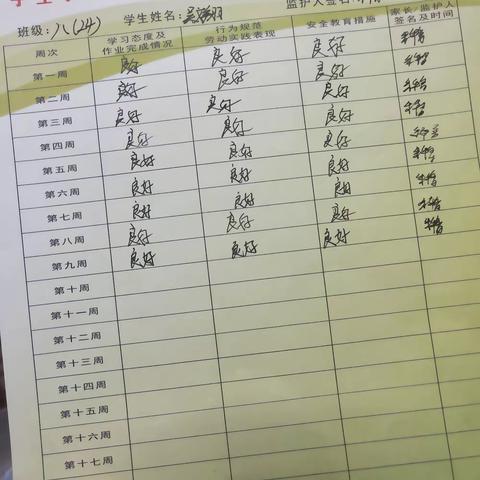 班级:八(24) 学生姓名:吴 监护人签名
周次 学习态度及作业完成情况 行为规范劳动实践表现 安全教育措施 家长、监护人签名及时间
第一周 良好 良好 良好
第二周 良好 良好 良好
第三周 良好 良好 良好
第四周 良好 良好 良好
第五周 良好 良好 良好
第六周 良好 良好 良好
第七周 良好 良好 良好
第八周 良好 良好 良好
第九周 良好 良好 良好
第十周
第十一周
第十二周
第十三周
第十四周
第十五周
第十六周
第十七周